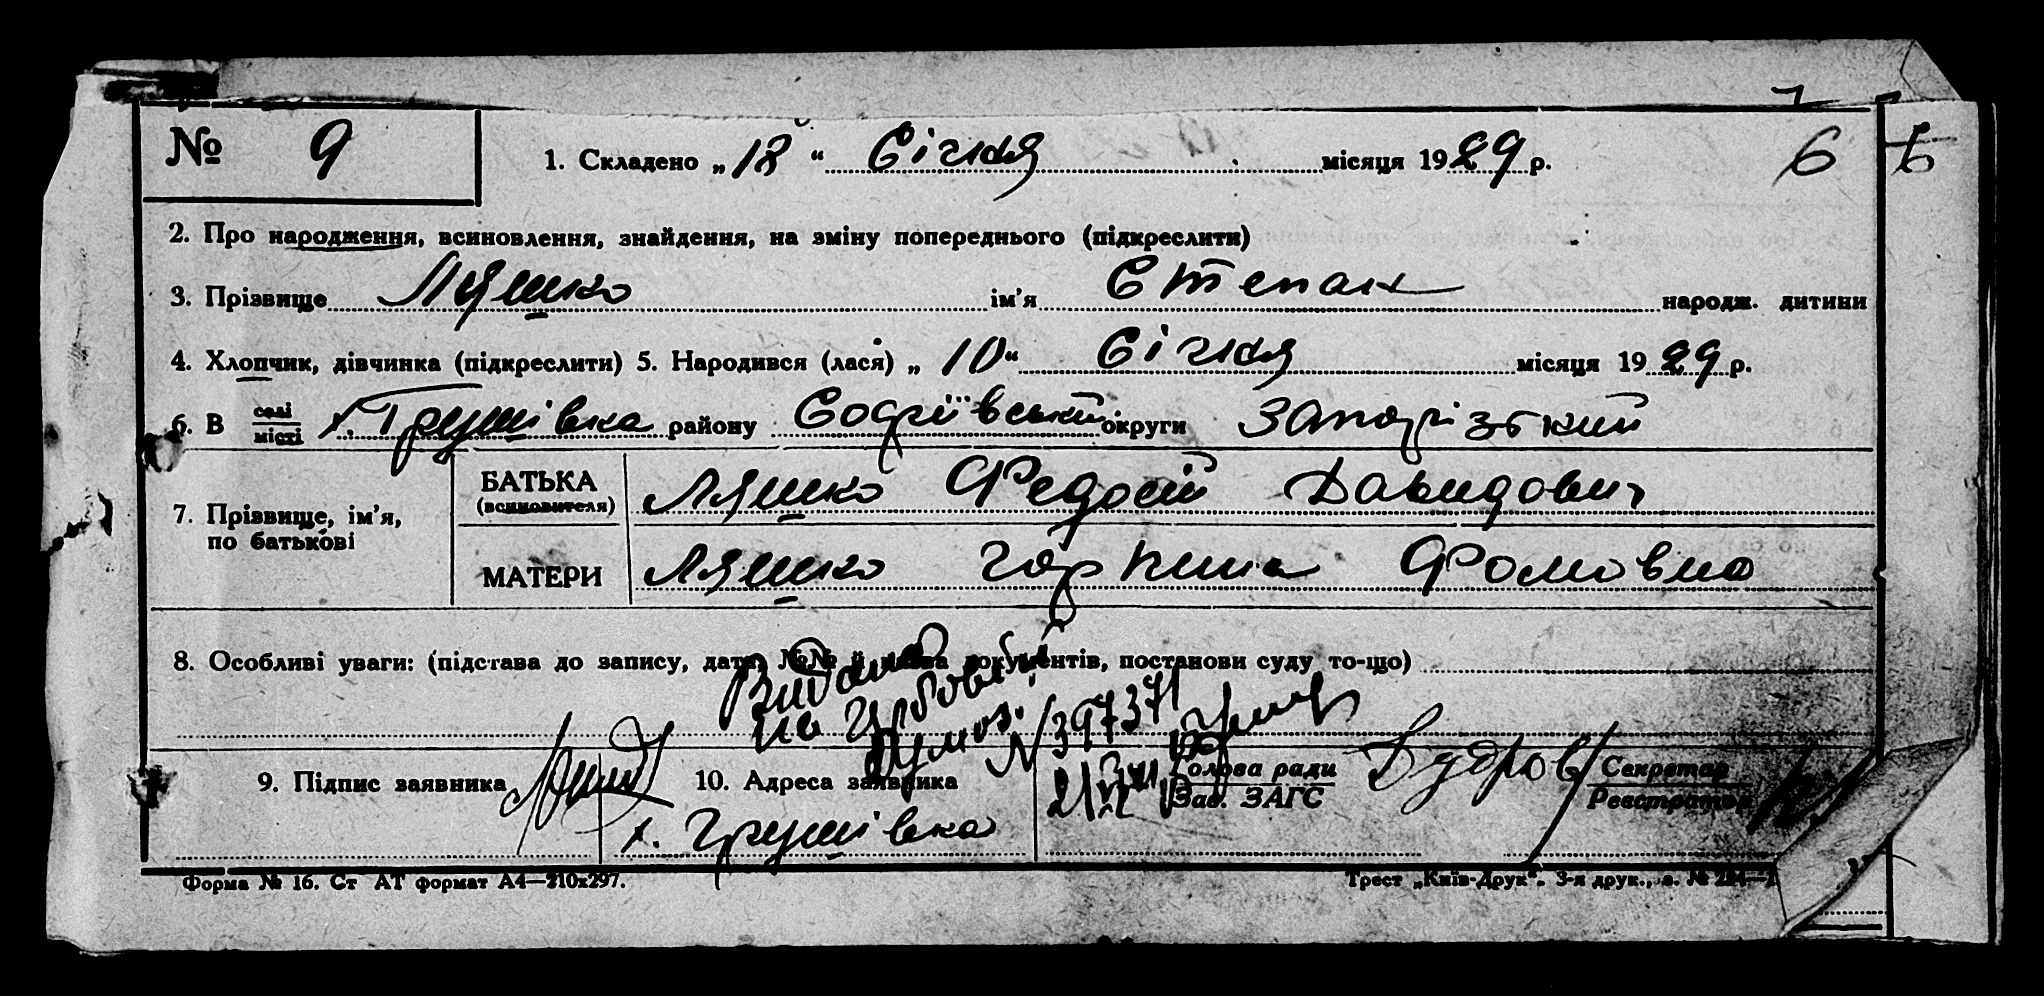 № 9
1. Складено „18“ Січня місяця 1929 р. 6
2. Про народження, всиновлення, знайдення, на зміну попереднього (підкреслити)
3. Прізвище Ляшко ім'я Степан народж. дитини
4. Хлопчик, дівчинка (підкреслити) 5. Народився (лася) „10“ Січня місяця 1929 р.
6. В селі місті х. Грушівка району Софіївський округи Запорізький
7. Прізвище, ім'я, по батькові
БАТЬКА (всиновителя) Ляшко Федосій Давидович
МАТЕРИ Ляшко Горпина Фомовна
8. Особливі уваги: (підстава до запису, дата, №№ й назва документів, постанови суду то-що)
Видана
на
N 397371
9. Підпис заявника 10. Адреса заявника Голова ради Секретар
Зав. ЗАГС Реєстратор
х. Грушівка
Форма № 16. Ст АТ формат А4—210х297. Трест „Київ-Друк“. 3-я друк., з. №